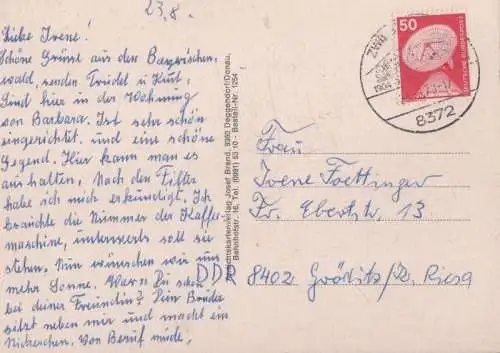 23.8.
Liebe Irene!
Schöne Grüsse aus den Bayerischen-
wald, senden Friedel u Kurt,
Sind hier in der Wohnung
von Barbara. Ist sehr schön
eingerichtet und eine schöne
Gegend. Hier kann man es
aushalten. Nach den
habe ich mich erkündigt. Ich
brauchte die Nummer der Kaffee-
maschine, unterwerts soll sie
stehen. Nun wünschen wir uns
mehr Sonne. Warst Du schon
bei deiner Freundin? Dein Bruder
sitzt neben mir und macht ein
Nickerchen. Von Beruf müde.
Ansichtskartenverlag Josef Brand, 8360 Deggendorf/Donau,
Bahnhofstr. 16, Tel. (0991) 53 10 - Bestell-Nr. 1254
50
DEUTSCHE BUNDESPOST
8372
Frau
Irene Foettinger
Fr. Ebertstr. 13
DDR
8402 Gröditz/Kr. Riesa